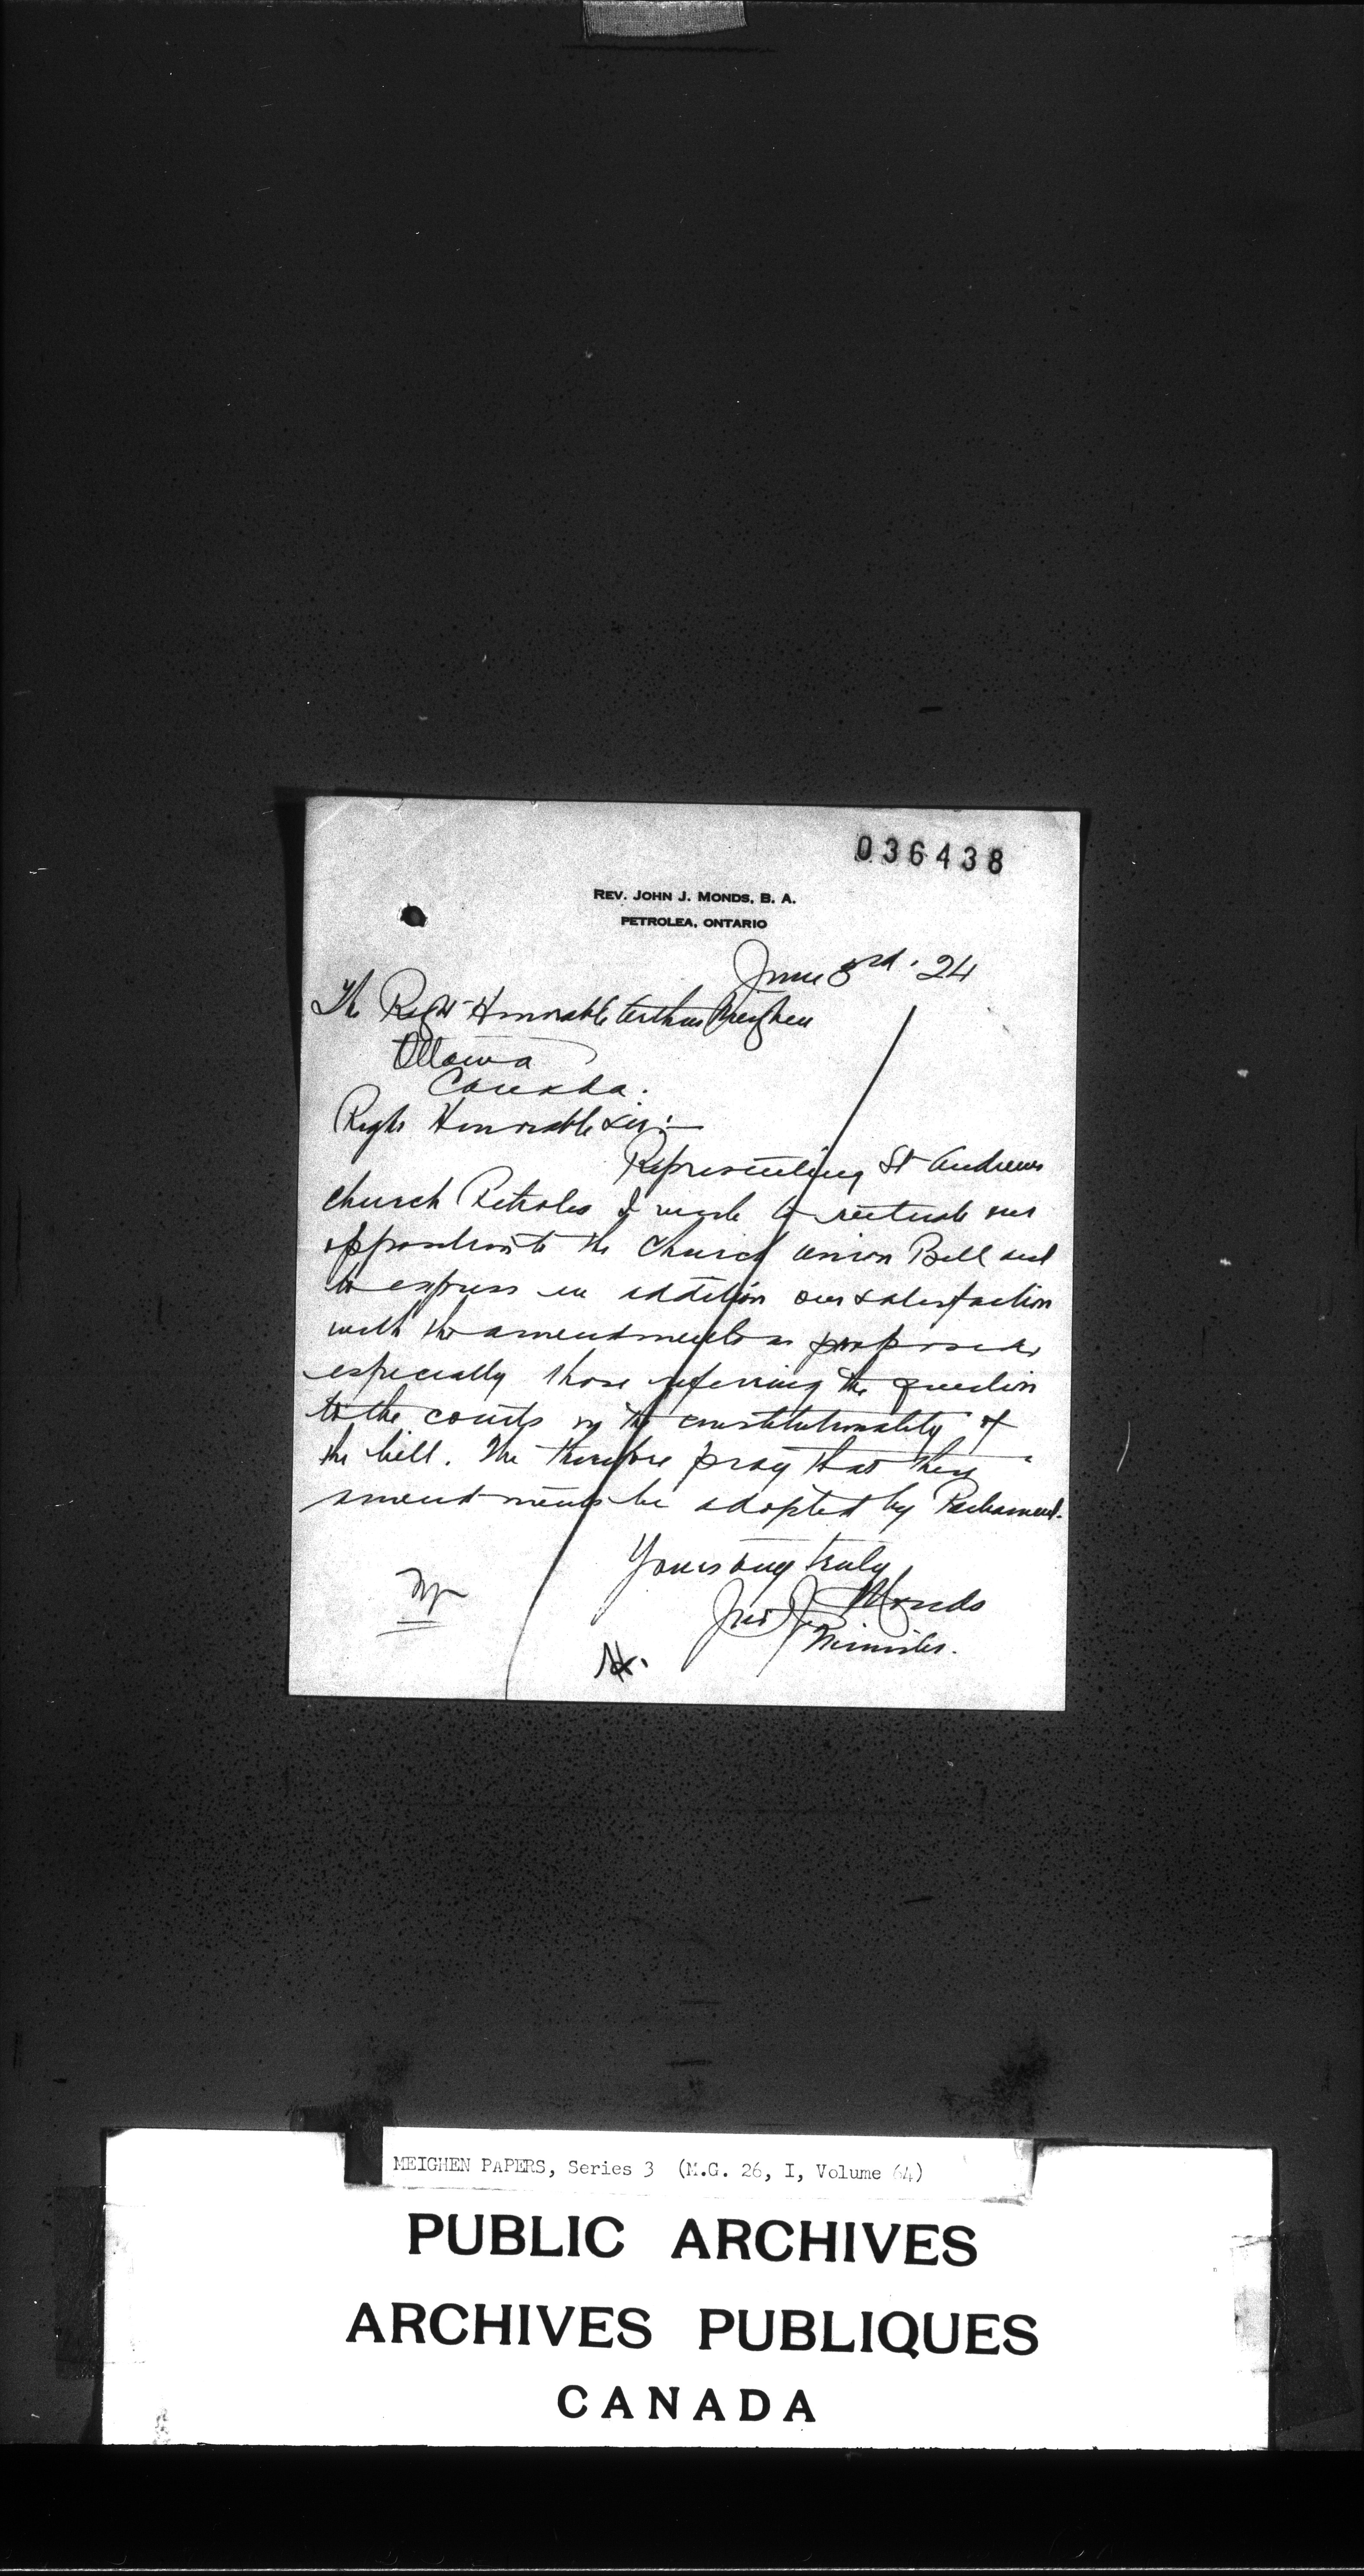 036438
REV. JOHN J. MONDS, B. A.
PETROLEA, ONTARIO
June 3rd. 24
The Right Honorable Arthur Meighen
Ottawa
Canada.
Right Honorable Sir:-
Representing St Andrews
church Petrolea I wish to reiterate our
opposition to the Church Union Bill and
to express in addition our satisfaction
with the amendments as proposed,
especially those referring the question
to the courts on the constitutionality of
the bill. We therefore pray that these
amendments be adopted by Parliament.
Yours very truly
Jno J. Monds
Minister.
MEIGHEN PAPERS, Series 3 (M.G. 26, I, Volume 64)
PUBLIC ARCHIVES
ARCHIVES PUBLIQUES
CANADA